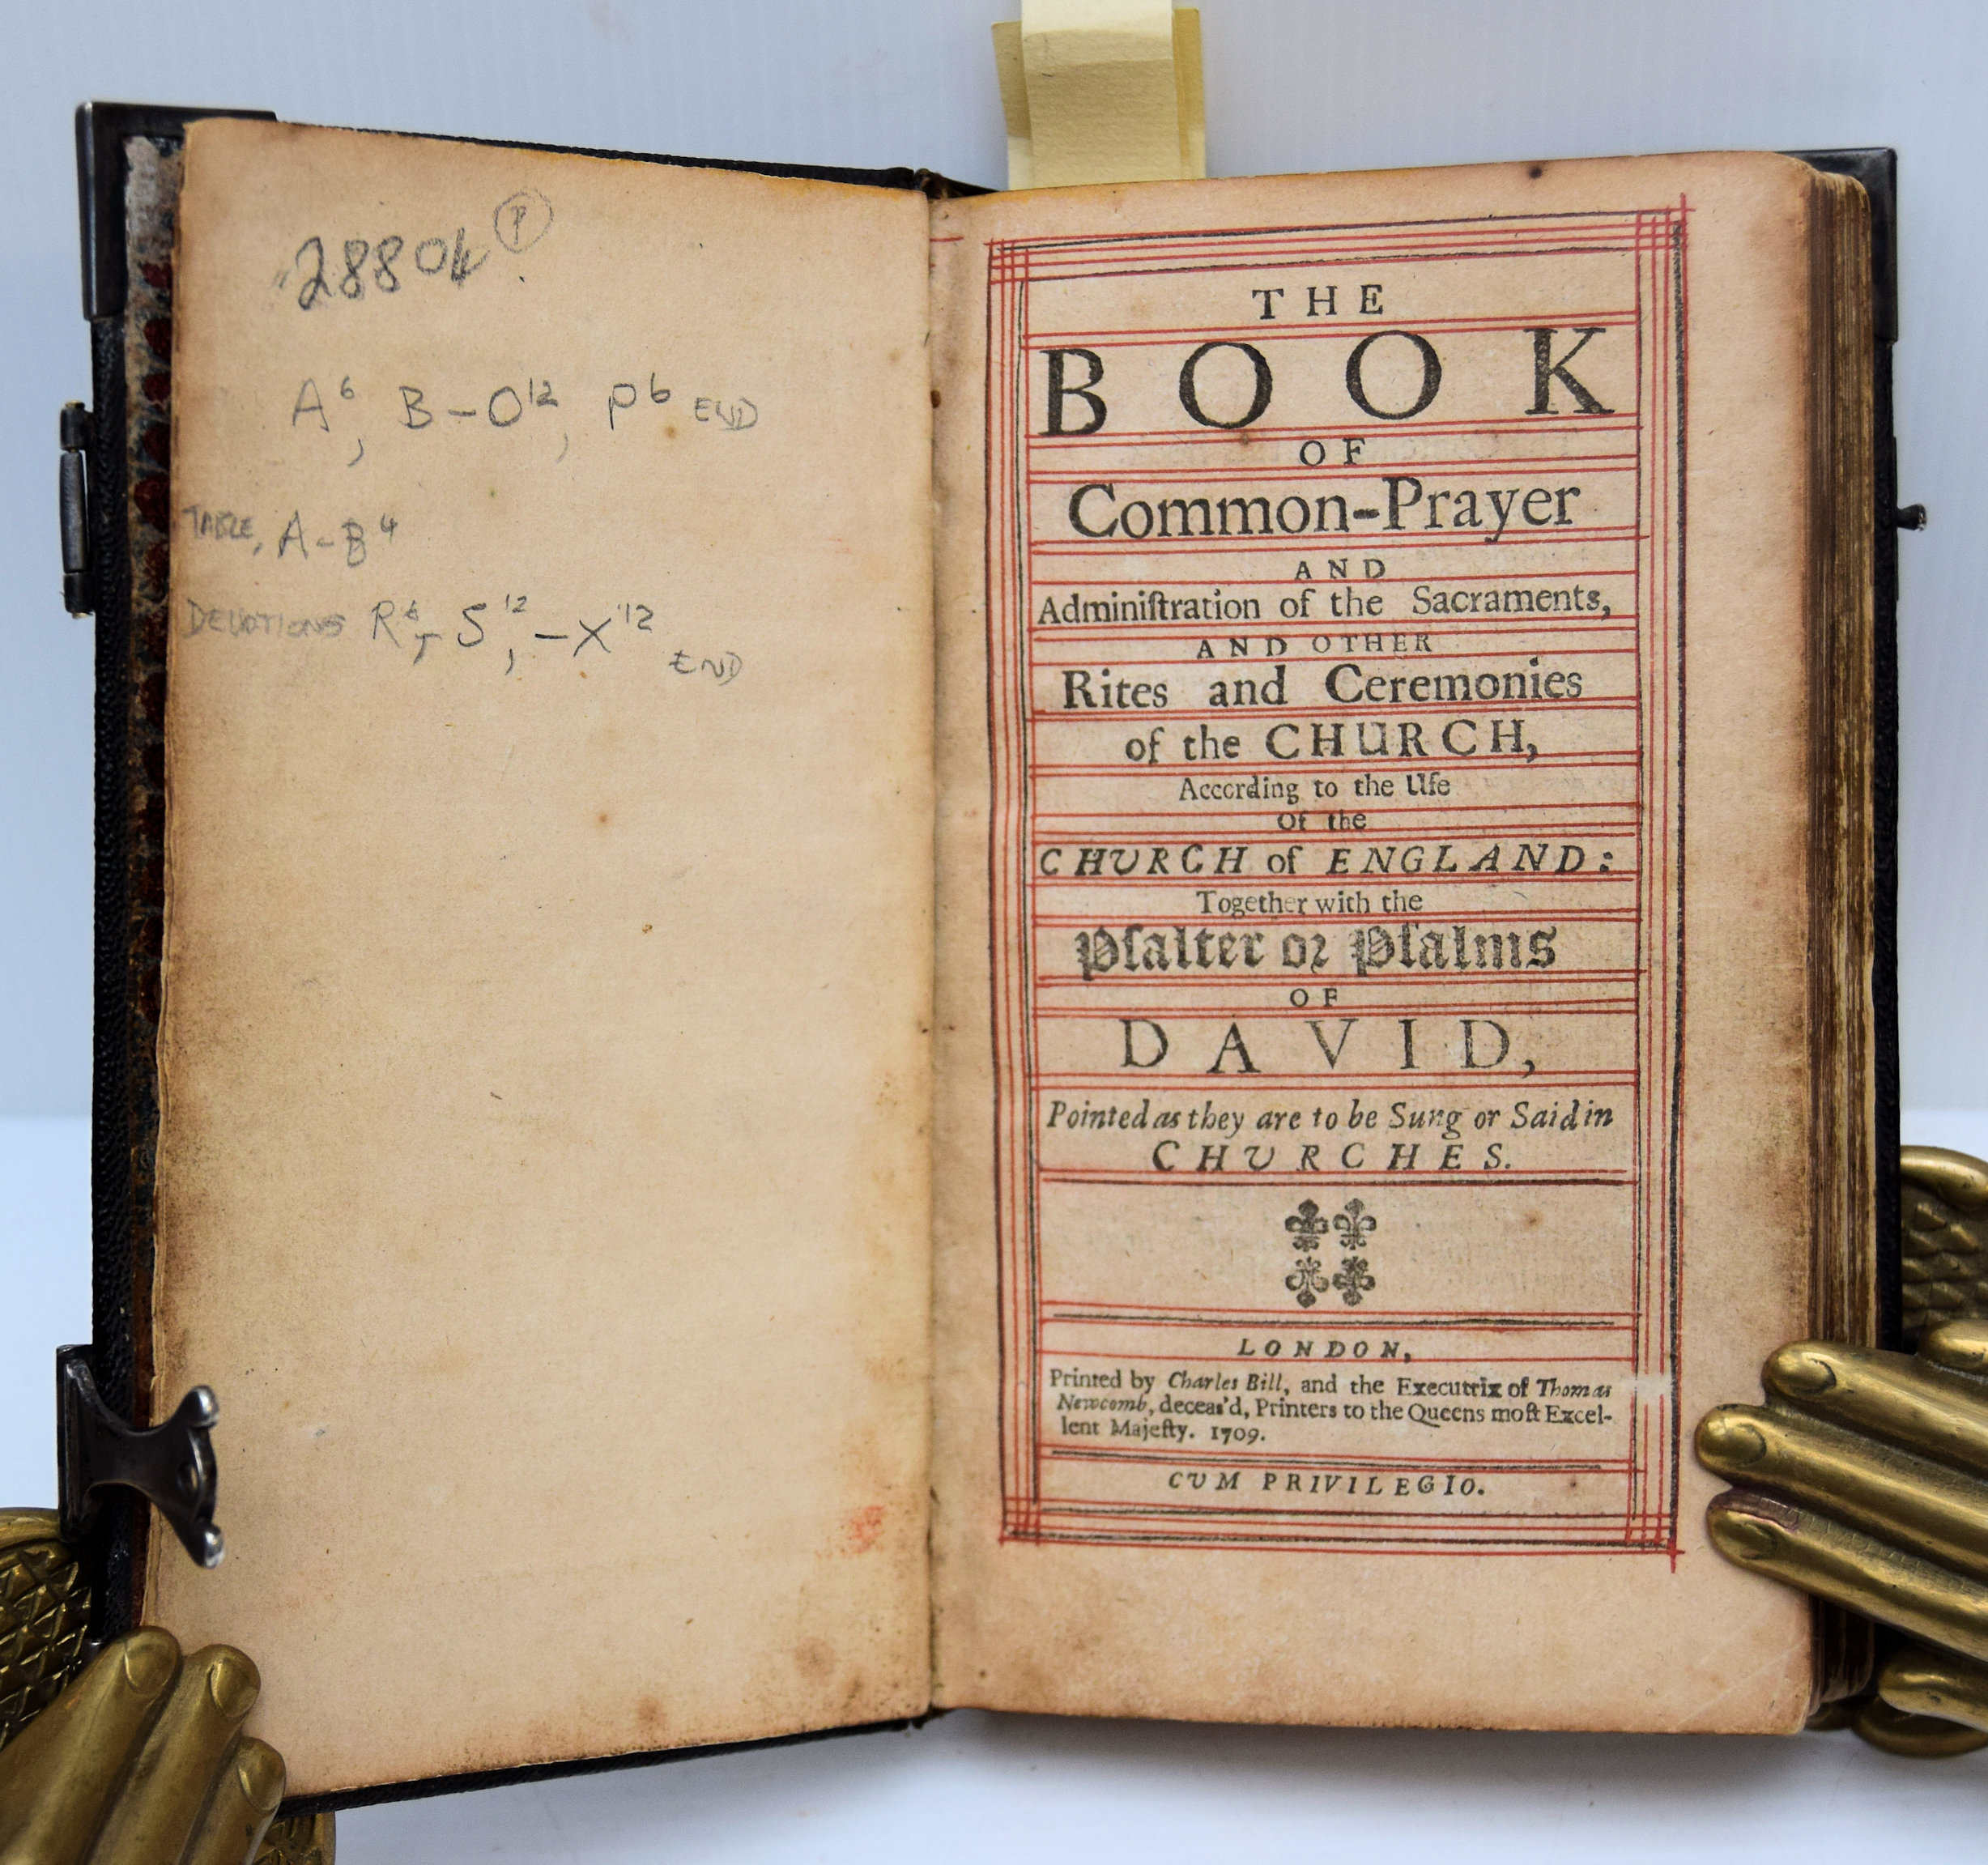 28804 P
A⁶, B-O¹², P⁶ END
TABLE, A-B⁴
DEVOTIONS R⁶, S¹², -X¹²
END
THE
BOOK
OF
Common-Prayer
AND
Adminiſtration of the Sacraments,
AND OTHER
Rites and Ceremonies
of the CHURCH,
According to the Uſe
Of the
CHURCH of ENGLAND:
Together with the
Pſalter or Pſalms
OF
DAVID,
Pointed as they are to be Sung or Said in
CHURCHES.
LONDON,
Printed by Charles Bill, and the Executrix of Thomas
Newcomb, deceas'd, Printers to the Queens moſt Excel-
lent Majeſty. 1709.
CUM PRIVILEGIO.